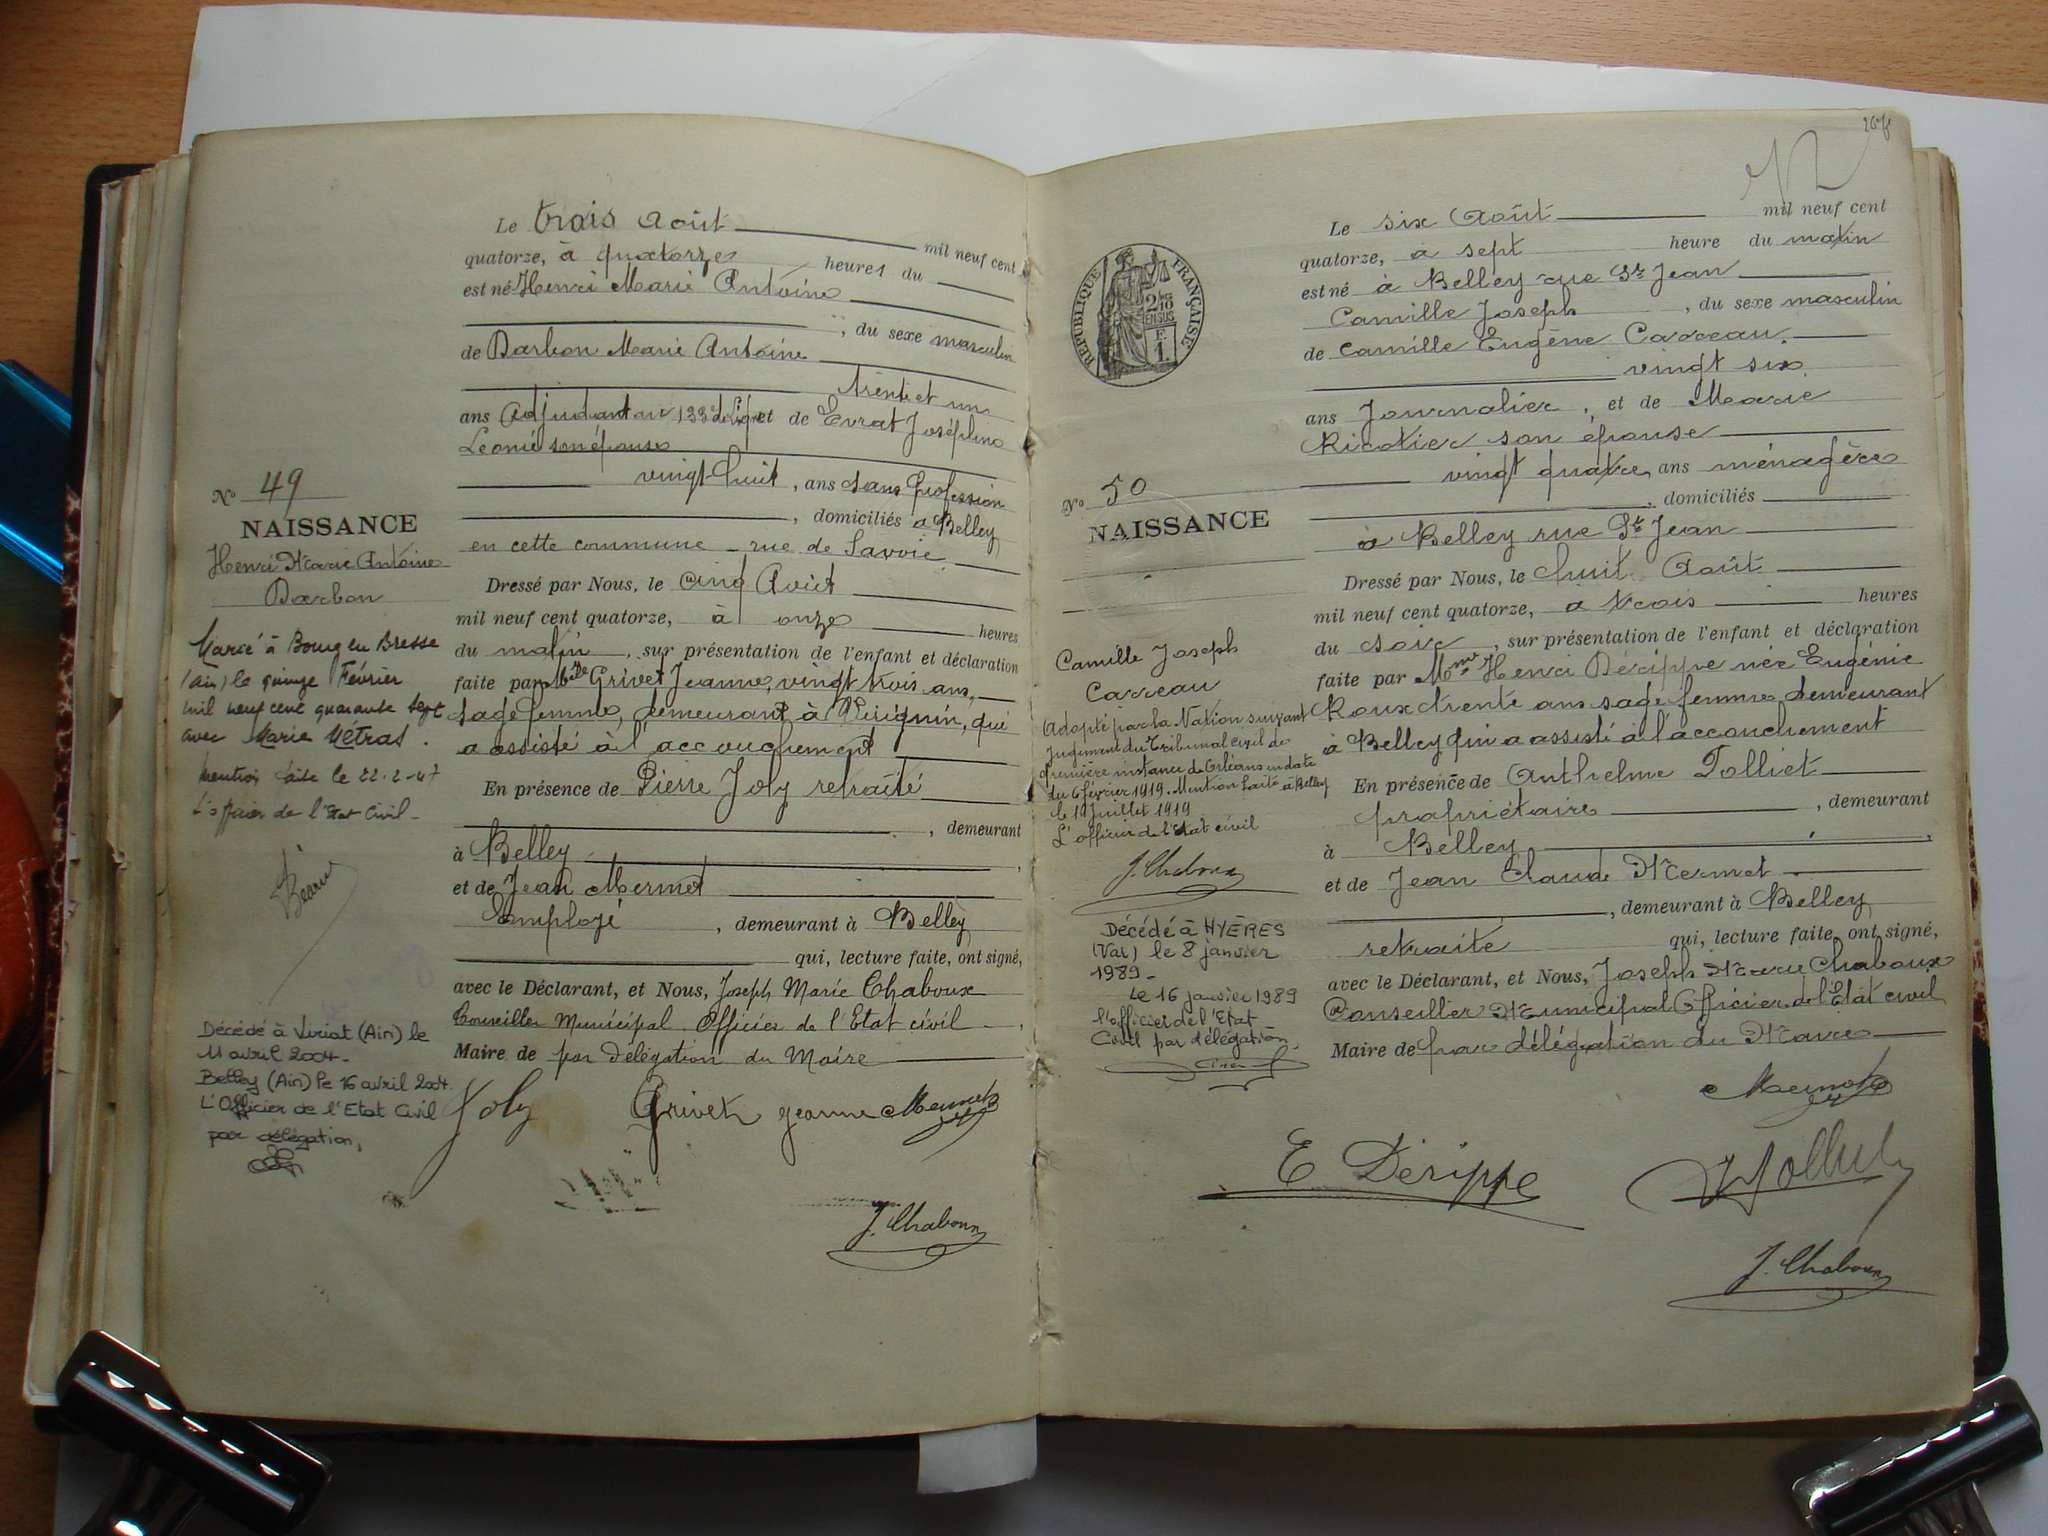 Le trois Août mil neuf cent
quatorze, à quatorze heures du
est né Henri Marie Antoine
, du sexe masculin
de Darbon Marie Antoine
trente et un
ans Adjudant au 133e de ligne et de Evrat Joséphine
Léonie son épouse
vingt-huit, ans sans profession
, domiciliés à Belley
en cette commune - rue de Savoie
Dressé par Nous, le cinq Août
mil neuf cent quatorze, à onze heures
du matin, sur présentation de l'enfant et déclaration
faite par Mlle Grivet Jeanne, vingt trois ans,
sage femme, demeurant à Virignin, qui
a assisté à l'accouchement
En présence de Pierre Joly retraité
, demeurant
à Belley,
et de Jean Mermet
Employé, demeurant à Belley
qui, lecture faite, ont signé,
avec le Déclarant, et Nous, Joseph Marie Chaboux
Conseiller Municipal Officier de l'Etat civil,
Maire de par délégation du Maire
Joly Grivet Jeanne Mermet
J. Chaboux
No 49
NAISSANCE
Henri Marie Antoine
Darbon
Marié à Bourg en Bresse
(Ain) le quinze Février
mil neuf cent quarante sept
avec Marie Métras.
Mention faite le 22-2-47
L'officier de l'Etat Civil -
Décédé à Viriat (Ain) le
11 avril 2004-
Belley (Ain) le 16 avril 2004.
L'Officier de l'Etat Civil
par délégation,
Le six Août mil neuf cent
quatorze, à sept heure du matin
est né à Belley rue St Jean
Camille Joseph, du sexe masculin
de Camille Eugène Carreau.
vingt six
ans Journalier, et de Marie
Ricotier son épouse
vingt quatre ans ménagère
, domiciliés
à Belley rue St Jean
Dressé par Nous, le huit Août
mil neuf cent quatorze, à trois heures
du soir, sur présentation de l'enfant et déclaration
faite par Mme Henri Dérippe née Eugénie
Roux trente ans sage femme demeurant
à Belley qui a assisté à l'accouchement
En présence de Anthelme Tolliet
propriétaire, demeurant
à Belley,
et de Jean Claude Mermet
, demeurant à Belley
retraité qui, lecture faite, ont signé,
avec le Déclarant, et Nous, Joseph Marie Chaboux
Conseiller Municipal Officier de l'Etat civil
Maire de par délégation du Maire
Mermet
E Dérippe Tolliet
J. Chaboux
RÉPUBLIQUE FRANÇAISE
2/10 EN SUS
F
1.
No 50
NAISSANCE
Camille Joseph
Carreau
Adopté par la Nation suivant
Jugement du Tribunal civil de
première instance de Orléans en date
du 6 février 1919. Mention faite à Belley
le 19 Juillet 1919
L'officier de l'Etat civil
J. Chaboux
Décédé à HYÈRES
(Var) le 8 janvier
1989-
Le 16 janvier 1989
l'officier de l'Etat
Civil par délégation.